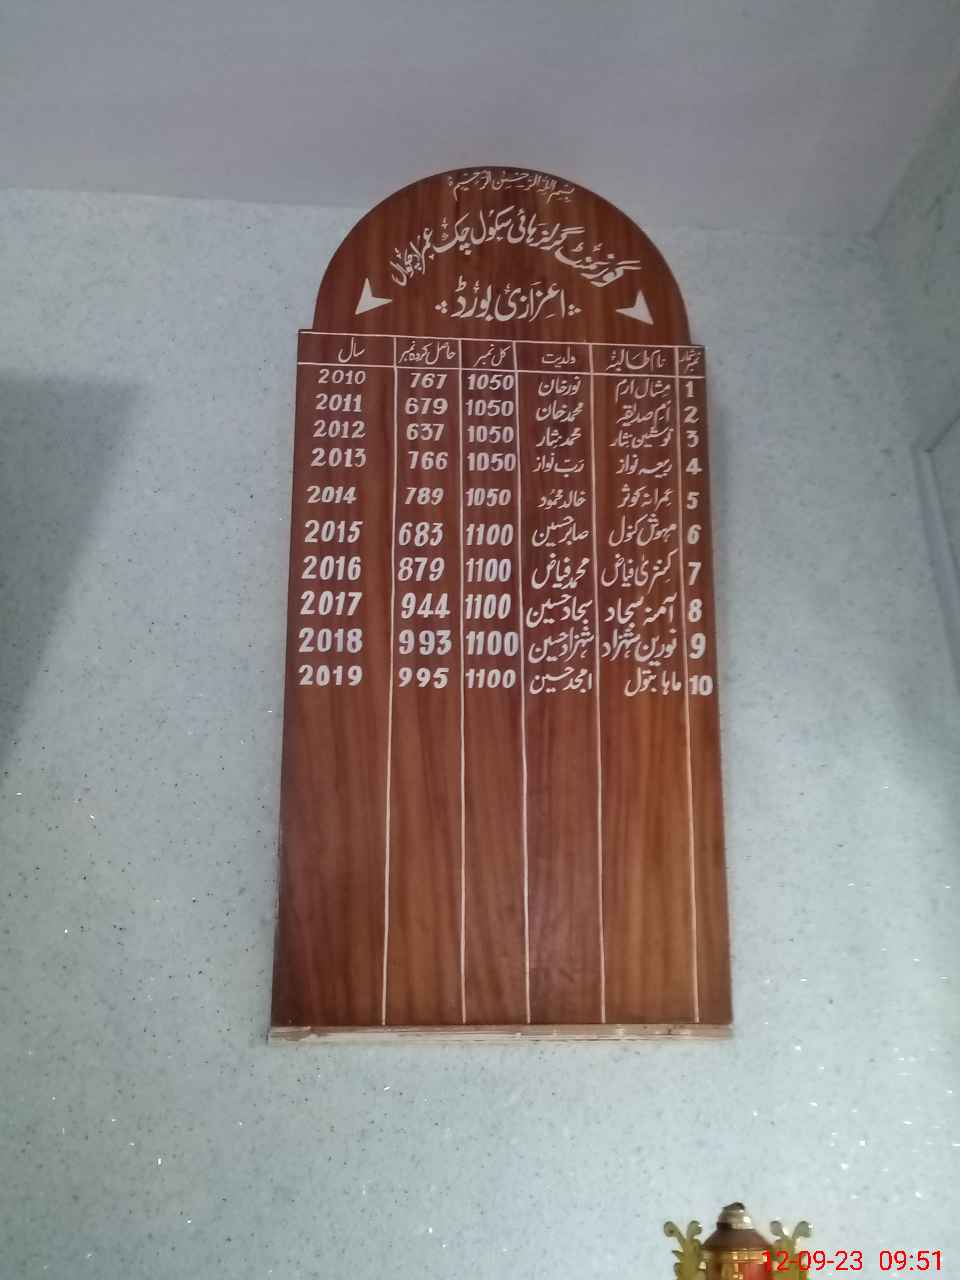 بسم اللہ الرحمٰن الرحیم
گورنمنٹ گرلز ہائی سکول چک عمرا چکوال
اعزازی بورڈ
نمبر شمار نام طالبہ ولدیت کل نمبر حاصل کردہ نمبر سال
1 مشال ارم نور خان 1050 767 2010
2 ام صدیقہ محمد خان 1050 679 2011
3 نوشین نثار محمد نثار 1050 637 2012
4 ربیعہ نواز رب نواز 1050 766 2013
5 عمرانہ کوثر خالد محمود 1050 789 2014
6 مہوش کنول صابر حسین 1100 683 2015
7 کنزیٰ فیاض محمد فیاض 1100 879 2016
8 آمنہ سجاد سجاد حسین 1100 944 2017
9 نورین شہزاد شہزاد حسین 1100 993 2018
10 ماہا بتول امجد حسین 1100 995 2019
12-09-23 09:51